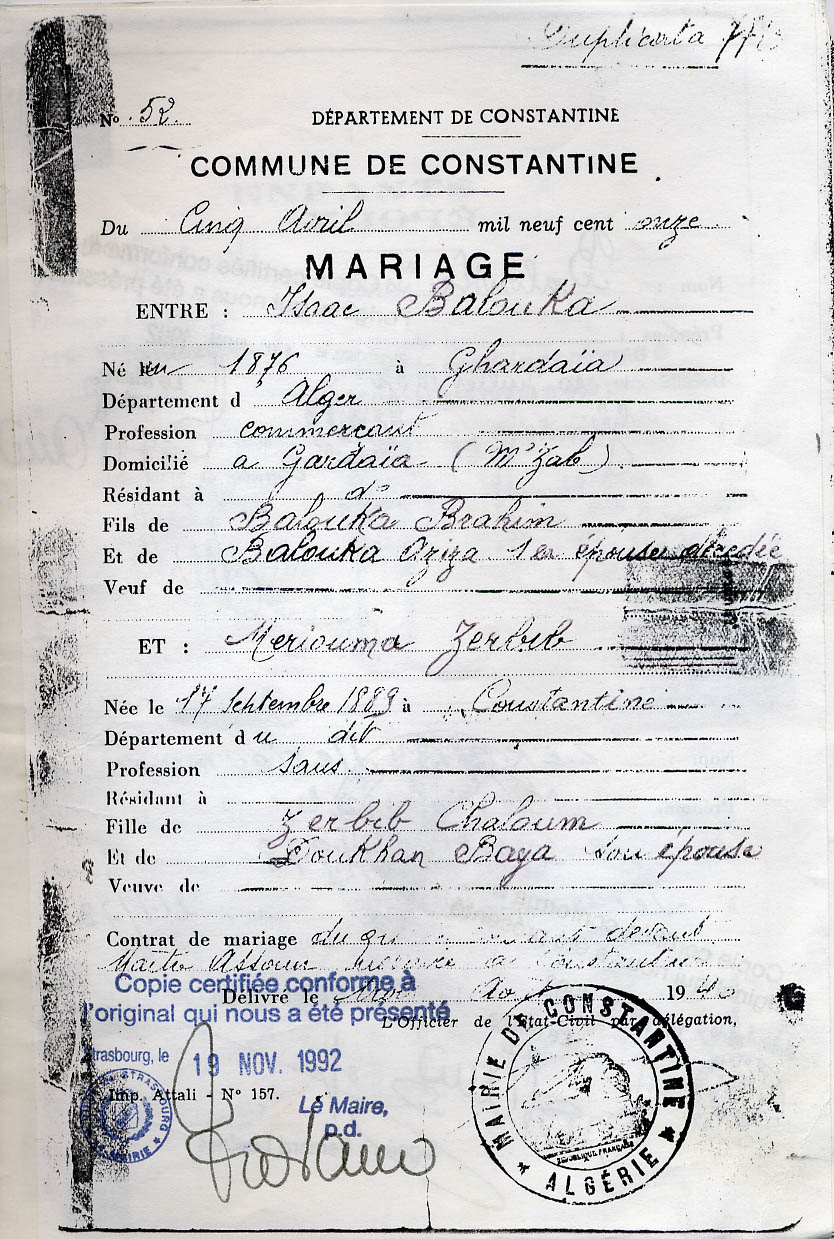 Duplicata
No 52
DÉPARTEMENT DE CONSTANTINE
COMMUNE DE CONSTANTINE
Du Cinq Avril mil neuf cent onze
MARIAGE
ENTRE : Isaac Balouka
Né en 1876 à Ghardaïa
Département d'Alger
Profession commerçant
Domicilié a Gardaïa (M'Zab)
Résidant à do
Fils de Balouka Brahim
Et de Balouka Aziza 1er épouse décédée
Veuf de
ET : Meriouma Zerbib
Née le 17 Septembre 1889 à Constantine
Département du dit
Profession sans
Résidant à
Fille de Zerbib Chaloum
Et de Doukhan Baya son épouse
Veuve de
Contrat de mariage du devant
Maître Assoun notaire à Constantine
Copie certifiée conforme à
l'original qui nous a été présenté
Délivré le Août 19
L'Officier de l'État-Civil par délégation,
Strasbourg, le 19 NOV. 1992
Imp. Attali - N° 157.
Le Maire,
p.d.
MAIRIE DE CONSTANTINE
RÉPUBLIQUE FRANÇAISE
ALGÉRIE
STRASBOURG
MAIRIE